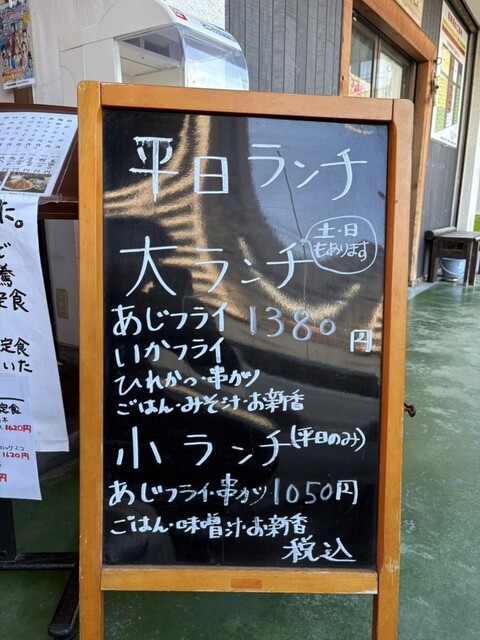 平日ランチ
土・日
もあります
大ランチ
あじフライ 1380円
いかフライ
ひれかつ・串カツ
ごはん・みそ汁・お新香
小ランチ(平日のみ)
あじフライ・串カツ 1050円
ごはん・味噌汁・お新香
税込
た。
定食
定食
いた
定食
1620円
1620円
円